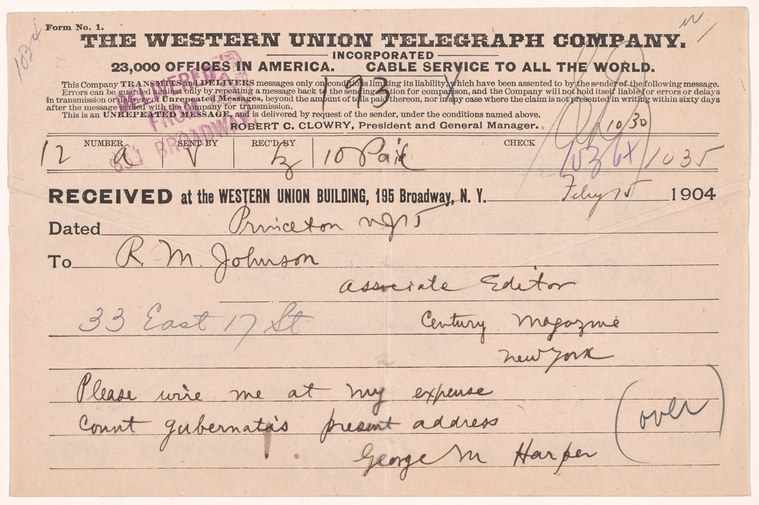 Form No. 1.
THE WESTERN UNION TELEGRAPH COMPANY.
INCORPORATED
23,000 OFFICES IN AMERICA. CABLE SERVICE TO ALL THE WORLD.
This Company TRANSMITS and DELIVERS messages only on conditions limiting its liability, which have been assented to by the sender of the following message.
Errors can be guarded against only by repeating a message back to the sending station for comparison, and the Company will not hold itself liable for errors or delays
in transmission or delivery of Unrepeated Messages, beyond the amount of tolls paid thereon, nor in any case where the claim is not presented in writing within sixty days
after the message is filed with the Company for transmission.
This is an UNREPEATED MESSAGE, and is delivered by request of the sender, under the conditions named above.
ROBERT C. CLOWRY, President and General Manager.
173
DELIVERED
FROM
BROADWAY
1030
10/30
NUMBER SENT BY REC'D BY CHECK
12 a V 10 Paid 1035
RECEIVED at the WESTERN UNION BUILDING, 195 Broadway, N. Y. Feby 15 1904
Dated Princeton NJ 15
To R. M. Johnson
Associate Editor
33 East 17 St Century Magazine
New York
Please wire me at my expense
Count gubernatis present address
(over)
George M Harper